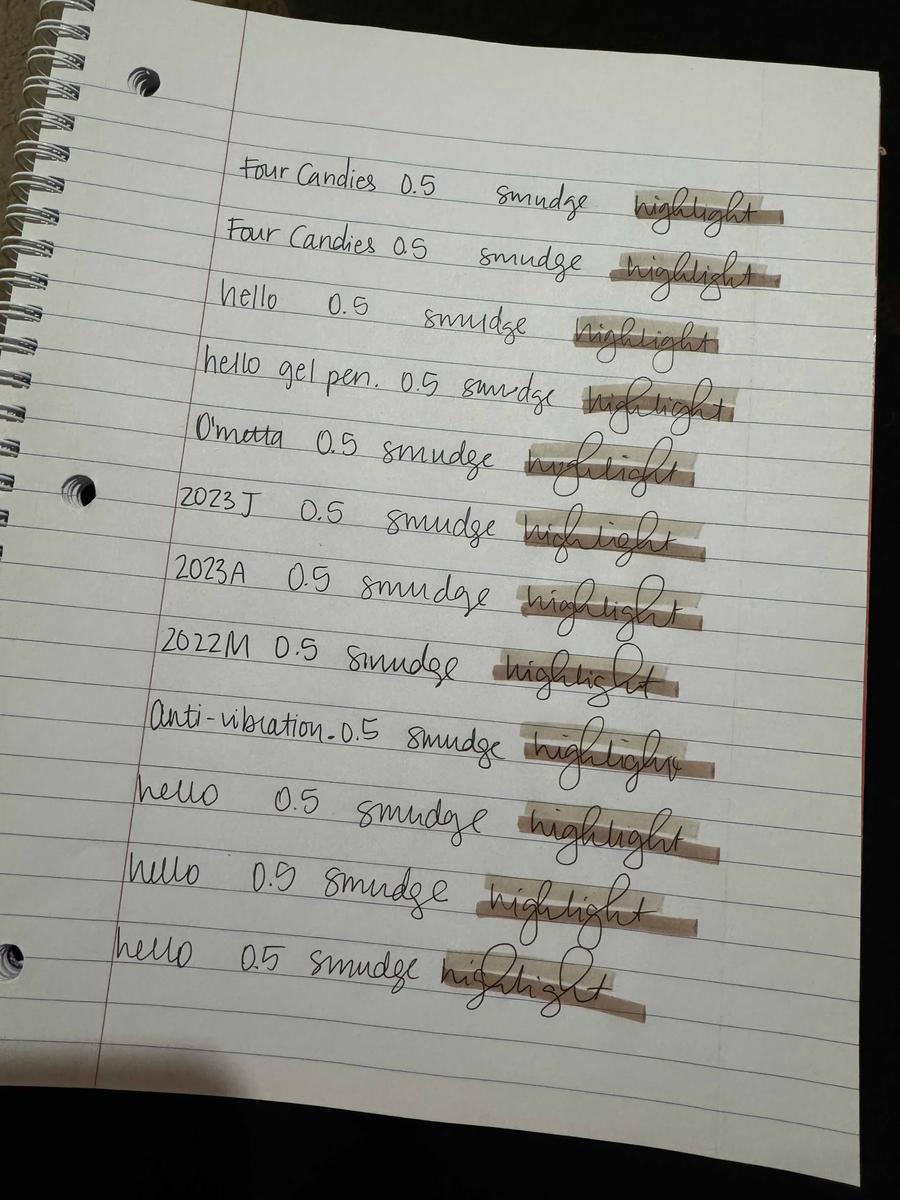 Four Candies 0.5 smudge highlight
Four Candies 0.5 smudge highlight
hello 0.5 smudge highlight
hello gel pen. 0.5 smudge highlight
O'metta 0.5 smudge highlight
2023J 0.5 smudge highlight
2023A 0.5 smudge highlight
2022M 0.5 smudge highlight
Anti-vibration-0.5 smudge highlight
hello 0.5 smudge highlight
hello 0.5 smudge highlight
hello 0.5 smudge highlight